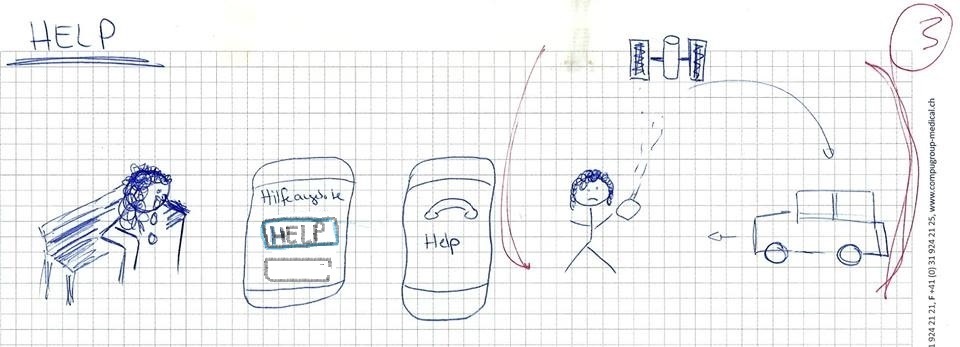 HELP
3
HELP
Help
1 924 21 21, F +41 (0) 31 924 21 25, www.compugroup-medical.ch